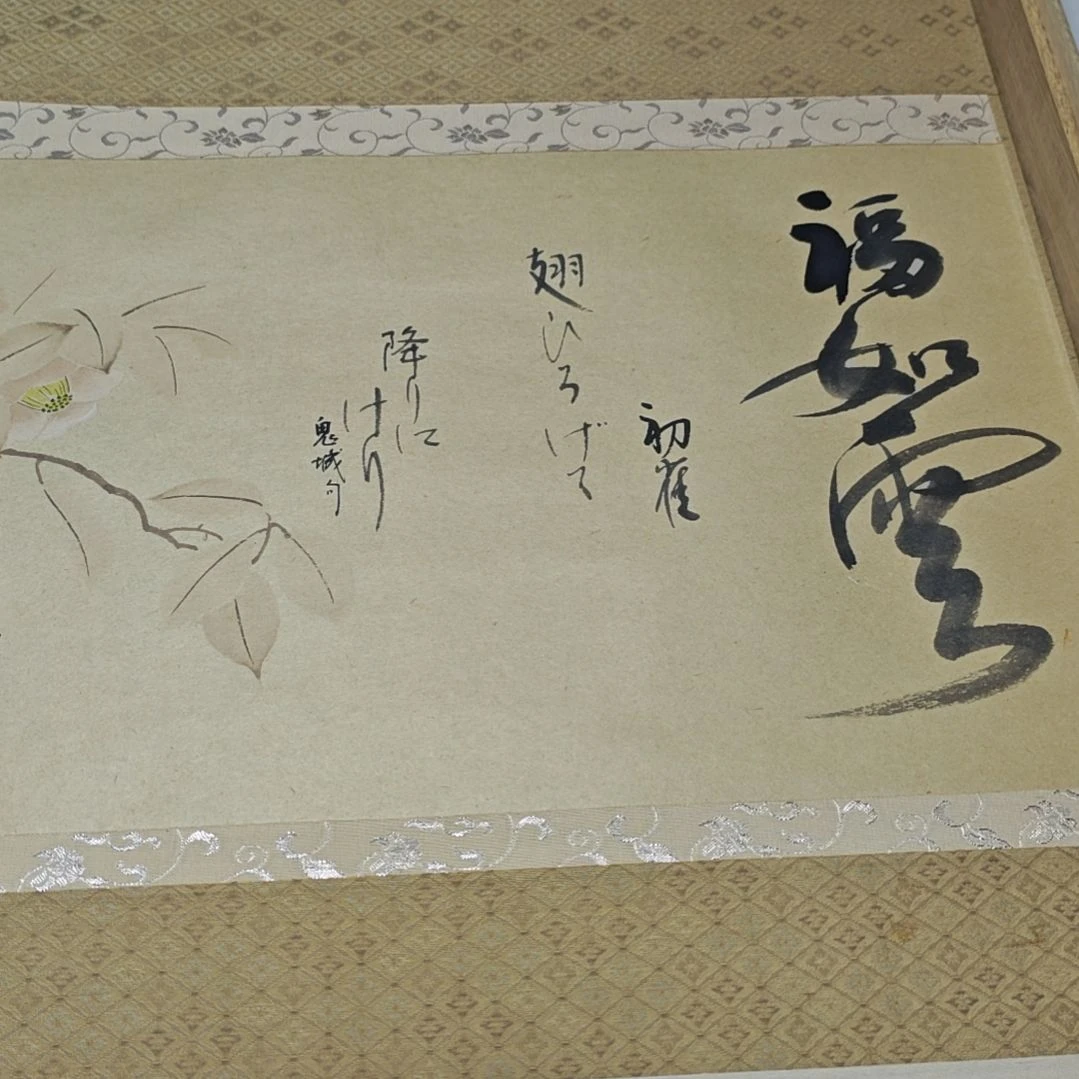 福如雲
初雀
翅ひろげて
降りに
けり
鬼城句